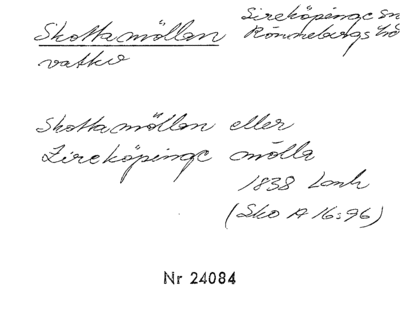 Skottamöllan Sireköpinge sn
Rönnebergs
vattkv
Skottamöllan eller
Zireköpinge mölla
1838 Lmk
(Sko A 16:96)
Nr 24084